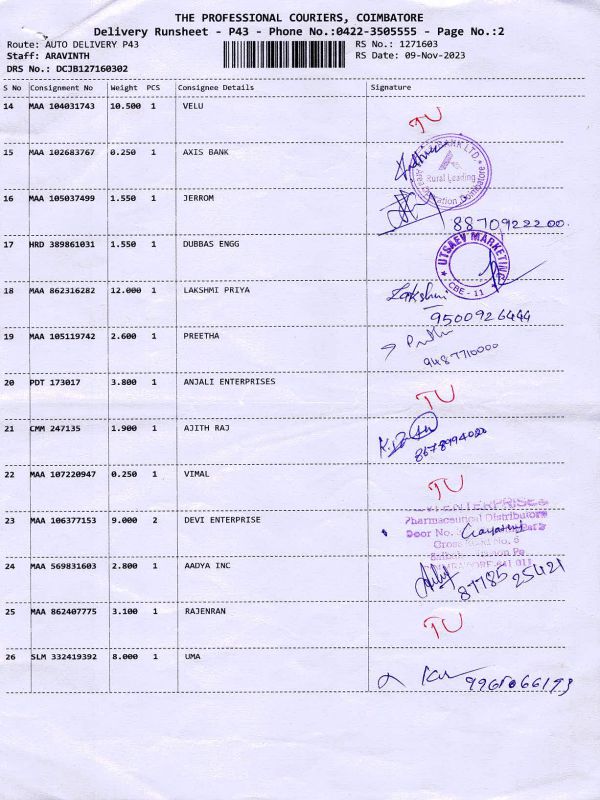 THE PROFESSIONAL COURIERS, COIMBATORE
Delivery Runsheet - P43 - Phone No.:0422-3505555 - Page No.:2
Route: AUTO DELIVERY P43 RS No.: 1271603
Staff: ARAVINTH RS Date: 09-Nov-2023
DRS No.: DCJB127160302
S No Consignment No Weight PCS Consignee Details Signature
14 MAA 104031743 10.500 1 VELU TU
15 MAA 102683767 0.250 1 AXIS BANK
BANK LTD.
Rural Lending
Coimbatore
16 MAA 105037499 1.550 1 JERROM
8870922200
17 HRD 389861031 1.550 1 DUBBAS ENGG
UTSAEV MARKETING
CBE - 11
18 MAA 862316282 12.000 1 LAKSHMI PRIYA Lakshmi
9500926444
19 MAA 105119742 2.600 1 PREETHA
9487710000
20 PDT 173017 3.800 1 ANJALI ENTERPRISES TU
21 CMM 247135 1.900 1 AJITH RAJ
22 MAA 107220947 0.250 1 VIMAL TU
23 MAA 106377153 9.000 2 DEVI ENTERPRISE
ENTERPRISES
Pharmaceutical Distributors
Door No.
Cross No. 6
641 011
24 MAA 569831603 2.800 1 AADYA INC
87785 25421
25 MAA 862407775 3.100 1 RAJENRAN TU
26 SLM 332419392 8.000 1 UMA